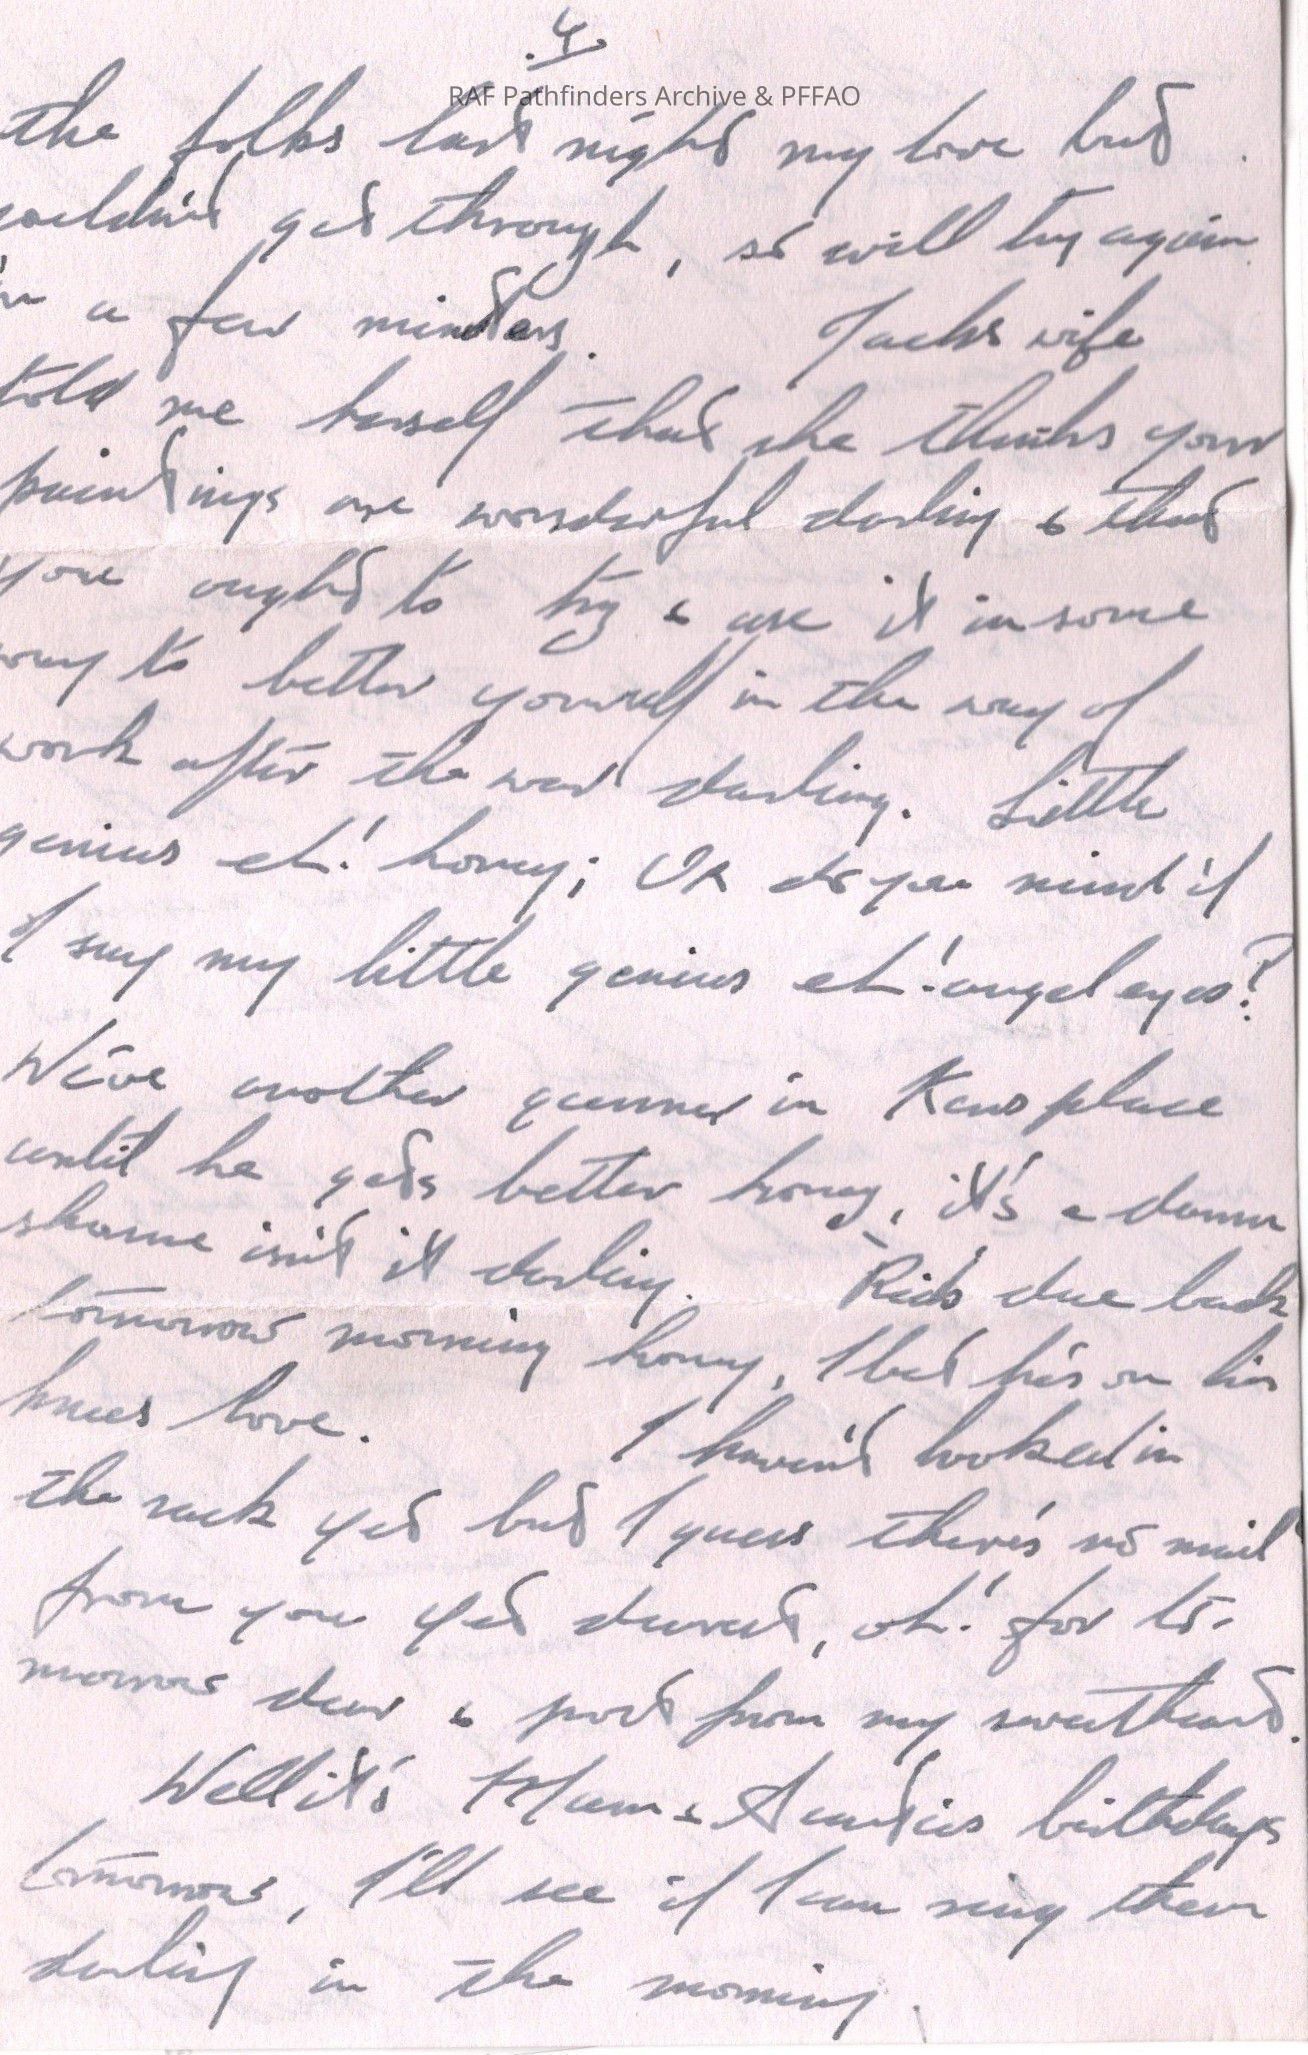 4.
RAF Pathfinders Archive & PFFAO
the folks last night my love but
couldn't get through, so will try again
in a few minutes. Jacks wife
told me herself that she thinks your
paintings are wonderful darling & that
you ought to try & use it in some
way to better yourself in the way of
work after the war darling. Little
genius eh! honey; Or do you mind if
I say my little genius eh! angel eyes?
We've another gunner in Kens place
until he gets better honey, it's a damn
shame isn't it darling. Rid's due back
tomorrow morning honey, I bet he's on his
knees love. I haven't looked in
the rack yet but I guess there's no mail
from you yet dearest, oh! for to-
morrow dear & post from my sweetheart.
Well it's Mum & Auntie's birthdays
tomorrow, I'll see if I can ring them
darling in the morning.